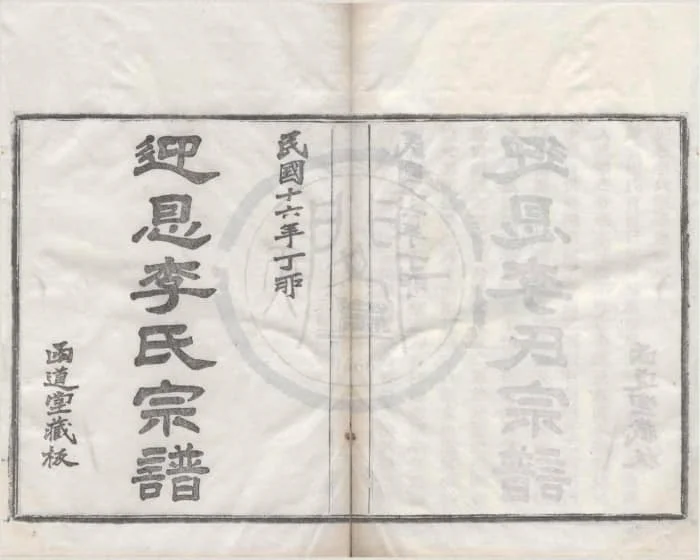 民國十六年丁卯
迎恩李氏宗譜
函道堂藏板